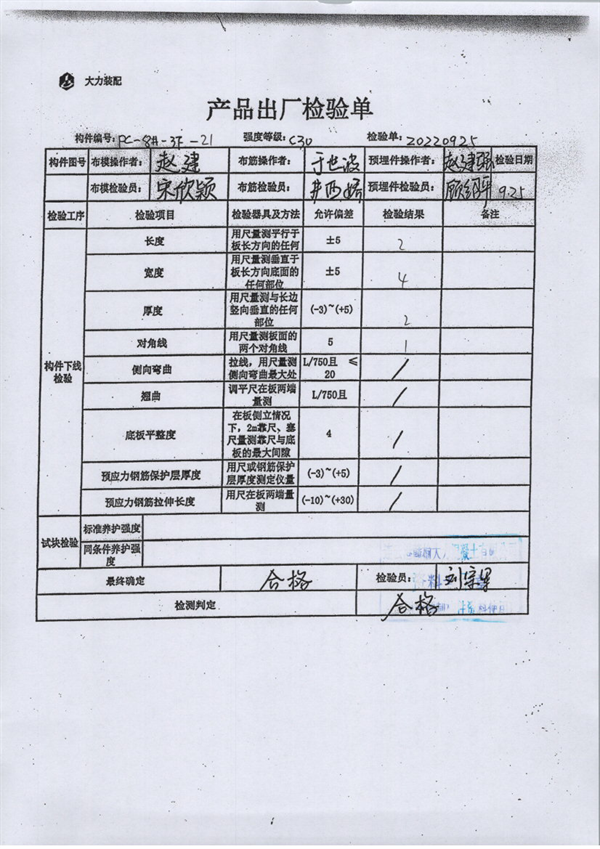 大力装配
产品出厂检验单
构件编号: PC-8#-3F-21 强度等级: C30 检验单: 20220925
构件图号 布模操作者: 赵建 布筋操作者: 于世波 预埋件操作者: 赵建强 检验日期
布模检验员: 宋欣颖 布筋检验员: 预埋件检验员: 9.25
检验工序 检验项目 检验器具及方法 允许偏差 检验结果 备注
构件下线检验
长度 用尺量测平行于板长方向的任何 ±5 2
宽度 用尺量测垂直于板长方向底面的任何部位 ±5 4
厚度 用尺量测与长边竖向垂直的任何部位 (-3)~(+5) 2
对角线 用尺量测板面的两个对角线 5 1
侧向弯曲 拉线，用尺量测侧向弯曲最大处 L/750且 ≤20 /
翘曲 调平尺在板两端量测 L/750且 /
底板平整度 在板侧立情况下，2m靠尺、塞尺量测靠尺与底板的最大间隙 4 /
预应力钢筋保护层厚度 用尺或钢筋保护层厚度测定仪量 (-3)~(+5) /
预应力钢筋拉伸长度 用尺在板两端量测 (-10)~(+30) /
试块检验 标准养护强度
同条件养护强度
最终确定 合格 检验员:
检测判定 合格